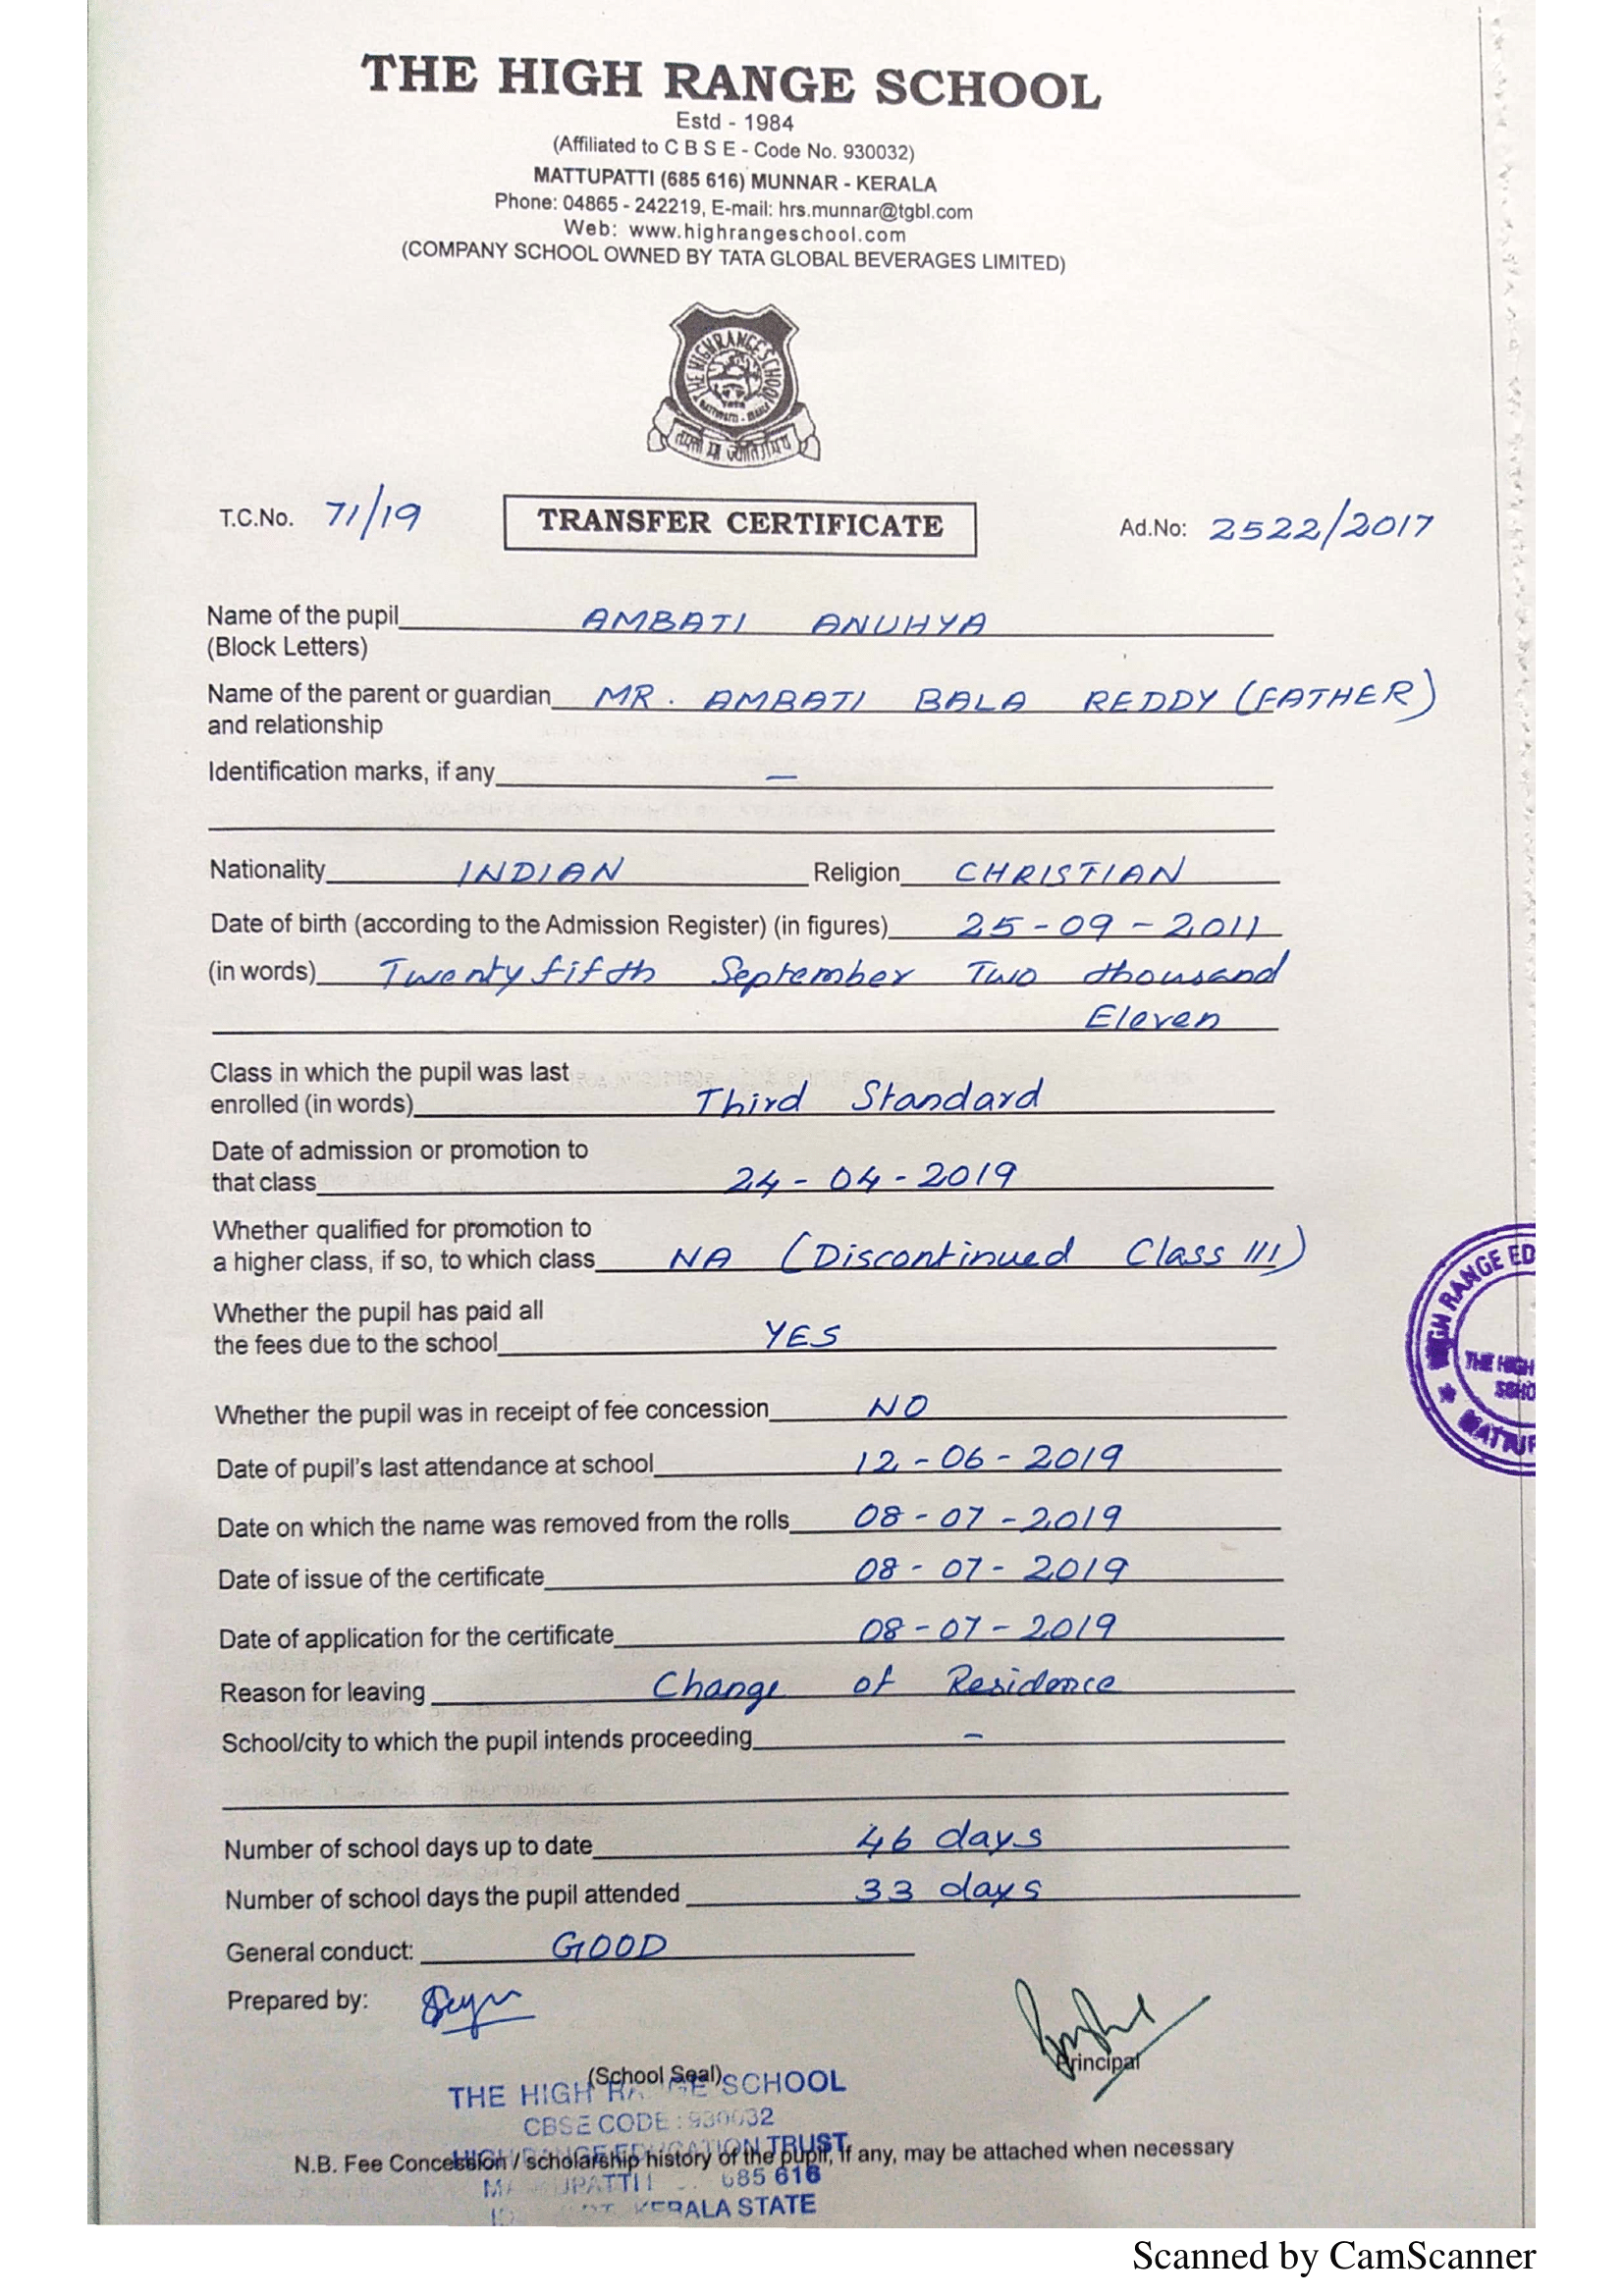 THE HIGH RANGE SCHOOL
Estd - 1984
(Affiliated to C B S E - Code No. 930032)
MATTUPATTI (685 616) MUNNAR - KERALA
Phone: 04865 - 242219, E-mail: hrs.munnar@tgbl.com
Web: www.highrangeschool.com
(COMPANY SCHOOL OWNED BY TATA GLOBAL BEVERAGES LIMITED)
THE HIGH RANGE SCHOOL
T.C.No. 71/19 TRANSFER CERTIFICATE Ad.No: 2522/2017
Name of the pupil AMBATI ANUHYA
(Block Letters)
Name of the parent or guardian MR. AMBATI BALA REDDY (FATHER)
and relationship
Identification marks, if any —
Nationality INDIAN Religion CHRISTIAN
Date of birth (according to the Admission Register) (in figures) 25-09-2011
(in words) Twenty fifth September Two thousand
Eleven
Class in which the pupil was last
enrolled (in words) Third Standard
Date of admission or promotion to
that class 24-04-2019
Whether qualified for promotion to
a higher class, if so, to which class NA (Discontinued Class III)
Whether the pupil has paid all
the fees due to the school YES
HIGH RANGE ED
THE HIGH
SCHO
MATTUP
Whether the pupil was in receipt of fee concession NO
Date of pupil's last attendance at school 12-06-2019
Date on which the name was removed from the rolls 08-07-2019
Date of issue of the certificate 08-07-2019
Date of application for the certificate 08-07-2019
Reason for leaving Change of Residence
School/city to which the pupil intends proceeding —
Number of school days up to date 46 days
Number of school days the pupil attended 33 days
General conduct: GOOD
Prepared by:
Principal
(School Seal)
THE HIGH RANGE SCHOOL
CBSE CODE : 930032
HIGH RANGE EDUCATION TRUST
N.B. Fee Concession / scholarship history of the pupil, if any, may be attached when necessary
685 616
KERALA STATE
Scanned by CamScanner